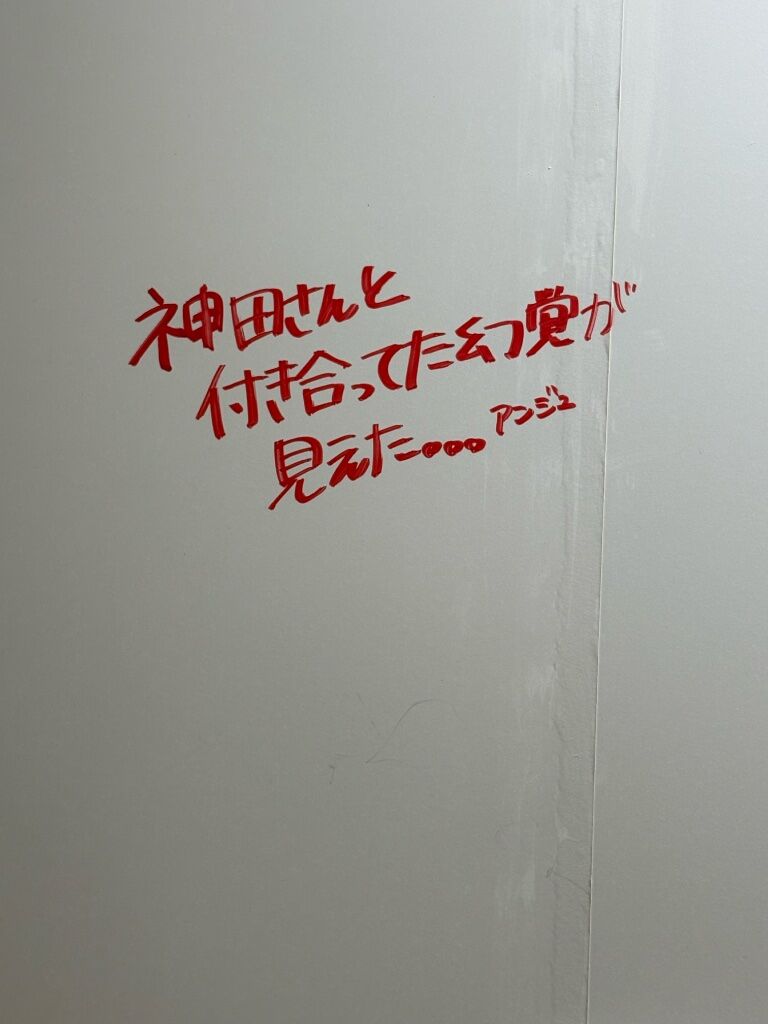 神田さんと
付き合ってた幻覚が
見えた。。。アンジュ